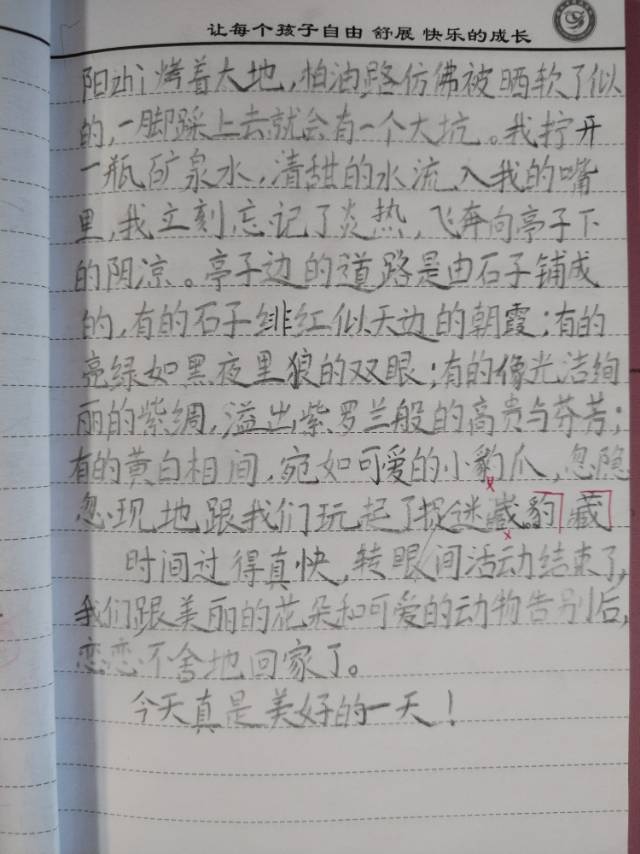 让每个孩子自由 舒展 快乐的成长
阳zhì烤着大地，柏油路仿佛被晒软了似
的，一脚踩上去就会有一个大坑。我拧开
一瓶矿泉水，清甜的水流入我的嘴
里，我立刻忘记了炎热，飞奔向亭子下
的阴凉。亭子边的道路是由石子铺成
的，有的石子绯红似天边的朝霞；有的
亮绿如黑夜里狼的双眼；有的像光洁绚
丽的紫绸，溢出紫罗兰般的高贵与芬芳；
有的黄白相间，宛如可爱的小豹爪，忽隐
忽现地跟我们玩起了捉迷藏豹藏
时间过得真快，转眼间活动结束了，
我们跟美丽的花朵和可爱的动物告别后，
恋恋不舍地回家了。
今天真是美好的一天！